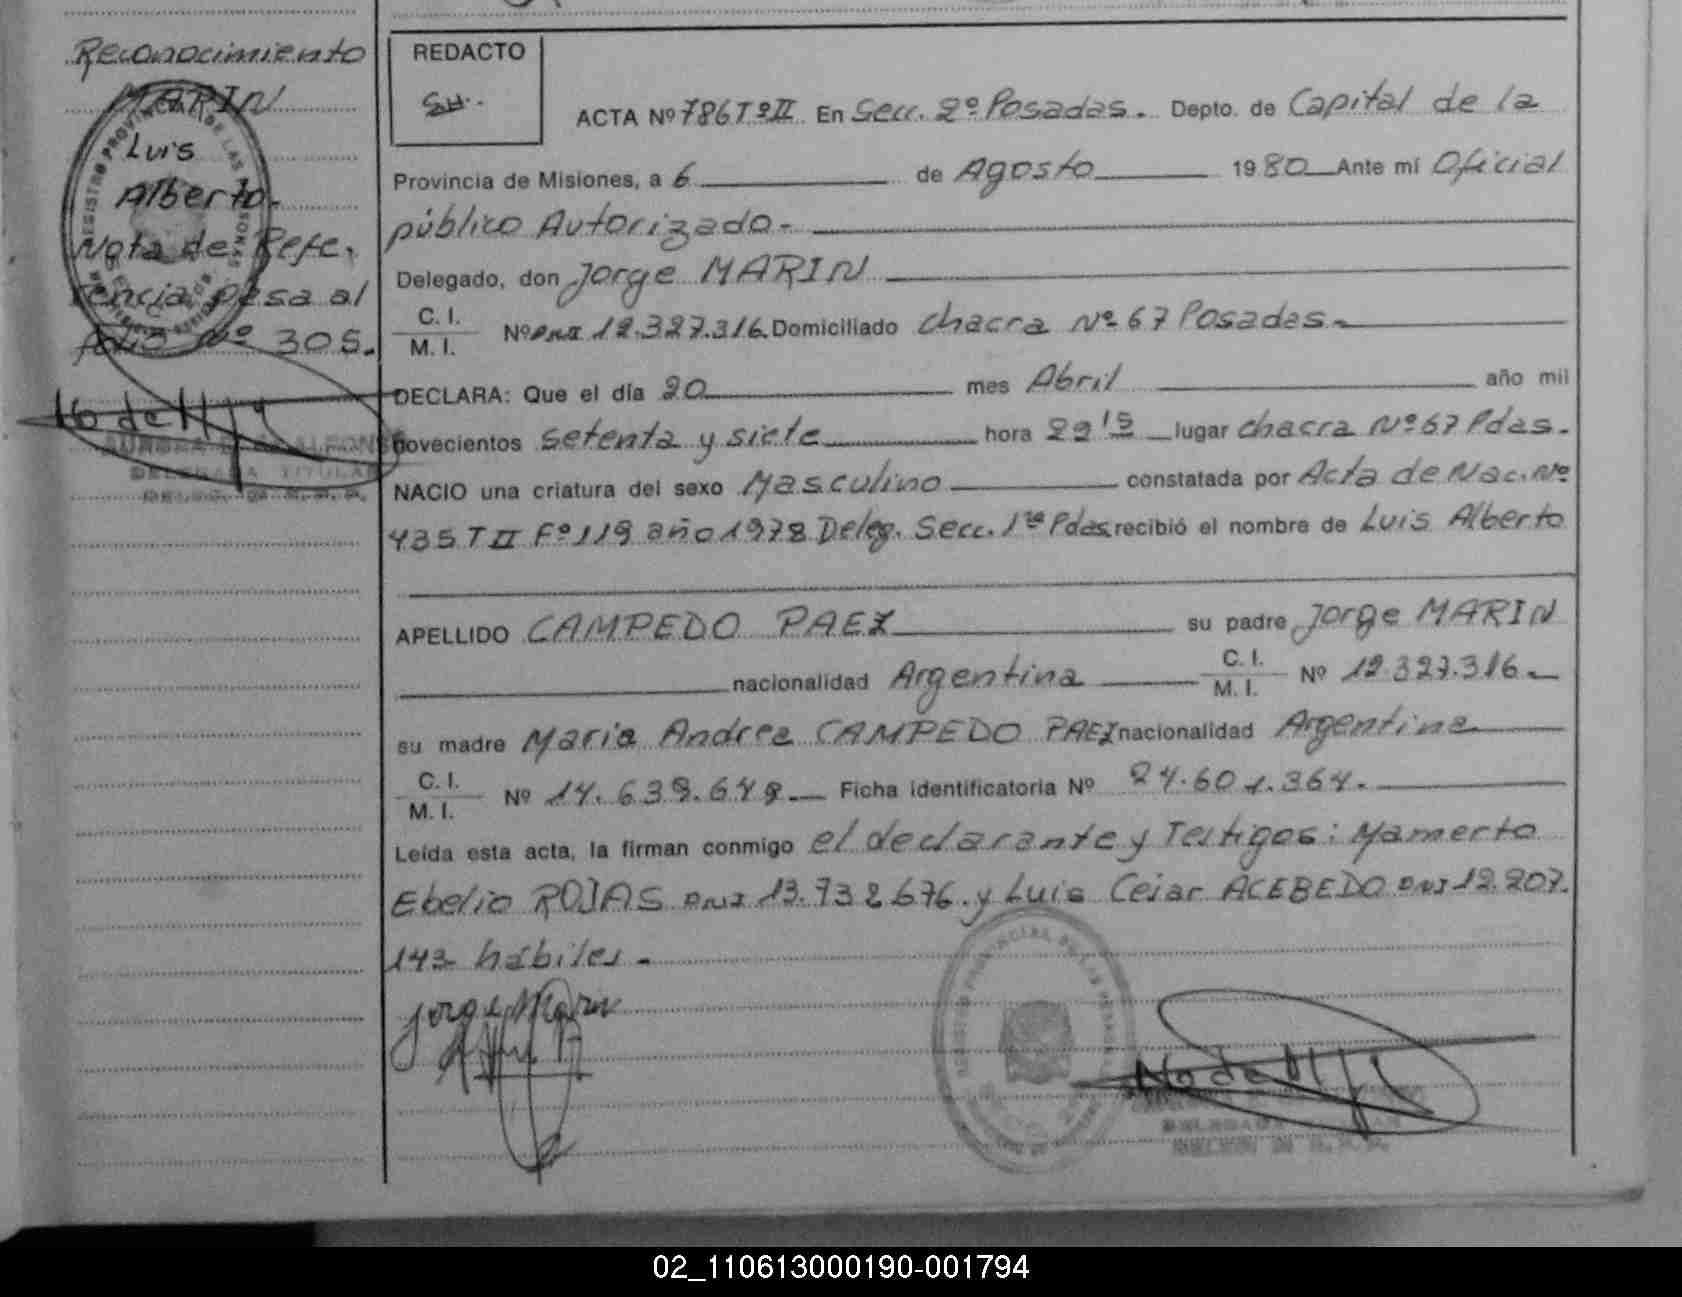 Reconocimiento
MARIN
Luis
Alberto.
Nota de Refe.
rencia pasa al
folio Nº 305.
DELEGADA TITULAR
REDACTO
ACTA Nº 786 Tº II En Secc. 2º Posadas. Depto. de Capital de la
Provincia de Misiones, a 6 de Agosto 1980 Ante mí Oficial
público Autorizado.-
Delegado, don Jorge MARIN
C. I.
M. I.
Nº DNI 12.327.316. Domiciliado chacra Nº 67 Posadas.-
DECLARA: Que el día 20 mes Abril año mil
novecientos setenta y siete hora 22 15 lugar chacra Nº 67 Pdas.
NACIO una criatura del sexo Masculino constatada por Acta de Nac. Nº
435 T II Fº 119 año 1978 Deleg. Secc. 1ra Pdas recibió el nombre de Luis Alberto
APELLIDO CAMPEDO PAEZ su padre Jorge MARIN
nacionalidad Argentina C. I. M. I. Nº 12.327.316.-
su madre Maria Andrea CAMPEDO PAEZ nacionalidad Argentina
C. I.
M. I.
Nº 14.639.649.- Ficha identificatoria Nº 24.601.364.
Leída esta acta, la firman conmigo el declarante y Testigos: Mamerto
Ebelio ROJAS DNI 13.732.676. y Luis Cesar ACEBEDO DNI 12.207.
143 hábiles.-
Jorge Marin
02_110613000190-001794